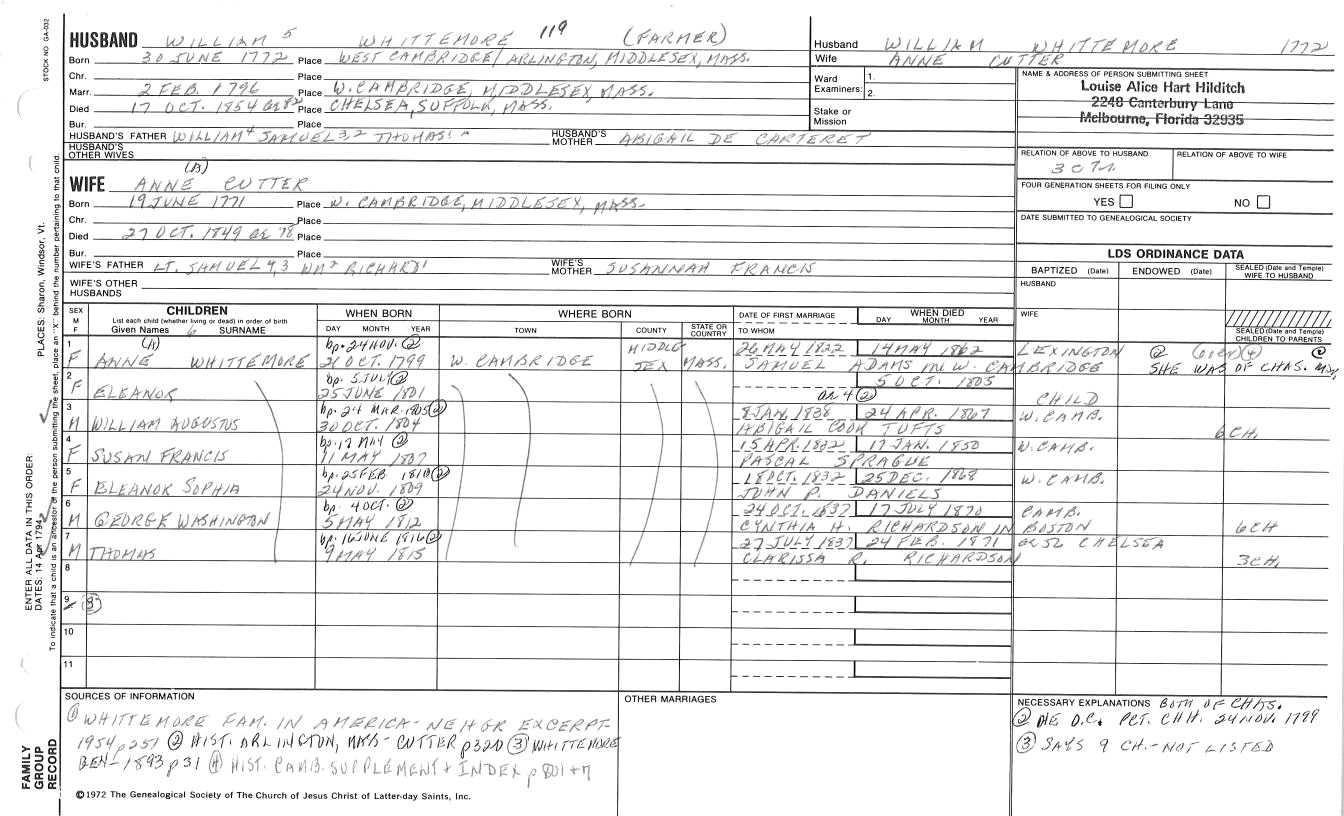 STOCK NO. GA-032
HUSBAND WILLIAM 5 WHITTEMORE 119 (FARMER)
Born 30 JUNE 1772 Place WEST CAMBRIDGE/ ARLINGTON, MIDDLESEX, MASS.
Chr. Place
Marr. 2 FEB. 1796 Place W. CAMBRIDGE, MIDDLESEX, MASS.
Died 17 OCT. 1854 ae 82 Place CHELSEA, SUFFOLK, MASS.
Bur. Place
HUSBAND'S FATHER WILLIAM 4 SAMUEL 3,2 THOMAS 1 HUSBAND'S MOTHER ABIGAIL DE CARTERET
HUSBAND'S OTHER WIVES
(A)
WIFE ANNE CUTTER
Born 19 JUNE 1771 Place W. CAMBRIDGE, MIDDLESEX, MASS.
Chr. Place
Died 27 OCT. 1849 ae 78 Place
Bur. Place
WIFE'S FATHER LT. SAMUEL 4,3 WM 2 RICHARD 1 WIFE'S MOTHER SUSANNAH FRANCIS
WIFE'S OTHER HUSBANDS
Husband WILLIAM WHITTEMORE 1772
Wife ANNE CUTTER
Ward Examiners: 1.
2.
Stake or Mission
NAME & ADDRESS OF PERSON SUBMITTING SHEET
Louise Alice Hart Hilditch
2248 Canterbury Lane
Melbourne, Florida 32935
RELATION OF ABOVE TO HUSBAND RELATION OF ABOVE TO WIFE
FOUR GENERATION SHEETS FOR FILING ONLY
YES NO
DATE SUBMITTED TO GENEALOGICAL SOCIETY
LDS ORDINANCE DATA
BAPTIZED (Date) ENDOWED (Date) SEALED (Date and Temple) WIFE TO HUSBAND
HUSBAND
WIFE
SEALED (Date and Temple) CHILDREN TO PARENTS
SEX M F CHILDREN WHEN BORN WHERE BORN DATE OF FIRST MARRIAGE WHEN DIED
List each child (whether living or dead) in order of birth
Given Names 6 SURNAME DAY MONTH YEAR TOWN COUNTY STATE OR COUNTRY TO WHOM DAY MONTH YEAR
1 (A) bp. 24 NOV. (2) MIDDLE 26 MAY 1822 14 MAY 1862 LEXINGTON (2) (over) (4) (2)
F ANNE WHITTEMORE 21 OCT. 1799 W. CAMBRIDGE SEX MASS. SAMUEL ADAMS IN W. CAMBRIDGE SHE WAS OF CHAS.
2 bp. 5 JULY (2) 5 OCT. 1805
F ELEANOR 25 JUNE 1801 ae 4 (2) CHILD
3 bp. 24 MAR. 1805 (2) 8 JAN. 1838 24 APR. 1867 W. CAMB.
M WILLIAM AUGUSTUS 30 OCT. 1804 ABIGAIL COOK TUFTS 6 CH.
4 bp. 17 MAY (2) 15 APR. 1832 17 JAN. 1850 W. CAMB.
F SUSAN FRANCIS 11 MAY 1807 PASCAL SPRAGUE
5 bp. 25 FEB 1810 (2) 18 OCT. 1832 25 DEC. 1868 W. CAMB.
F ELEANOR SOPHIA 24 NOV. 1809 JOHN P. DANIELS
6 bp. 4 OCT. (2) 24 OCT. 1837 17 JULY 1870 CAMB.
M GEORGE WASHINGTON 5 MAY 1812 CYNTHIA H. RICHARDSON IN BOSTON 6 CH
7 bp. 16 JUNE 1816 (2) 27 JULY 1837 24 FEB. 1871 ae 56 CHELSEA
M THOMAS 9 MAY 1815 CLARISSA R. RICHARDSON 3 CH.
8
9 (3)
10
11
SOURCES OF INFORMATION
(1) WHITTEMORE FAM. IN AMERICA - NEHGR EXCERPT-
(2) HIST. ARLINGTON, MASS - CUTTER p320 (3) WHITTEMORE
GEN - 1893 p31 (4) HIST. CAMB. SUPPLEMENT + INDEX p 801 + 7
OTHER MARRIAGES
NECESSARY EXPLANATIONS BOTH OF CHAS.
(2) PCT. CHH. 24 NOV. 1799
(3) SAYS 9 CH. - NOT LISTED
©1972 The Genealogical Society of The Church of Jesus Christ of Latter-day Saints, Inc.
FAMILY GROUP RECORD
ENTER ALL DATA IN THIS ORDER
DATES: 14 Apr 1794
PLACES: Sharon, Windsor, Vt.
To indicate that a child is an ancestor of the person submitting the sheet, place an "X" behind the number pertaining to that child.